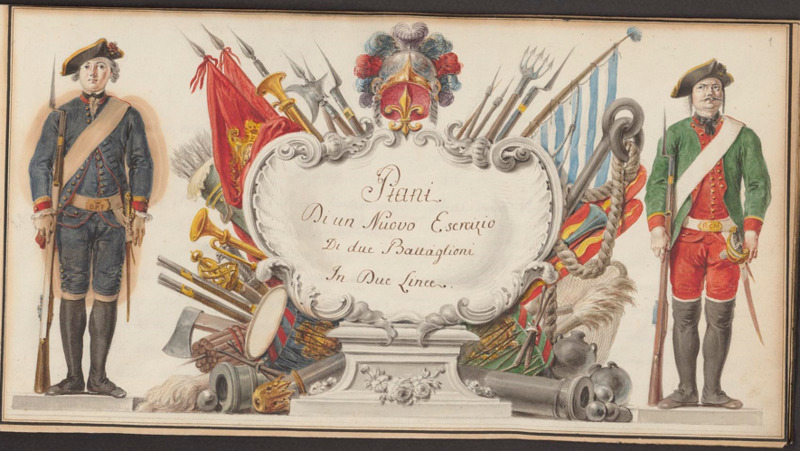 Piani
Di un Nuovo Esercizio
Di due Battaglioni
In Due Linee.